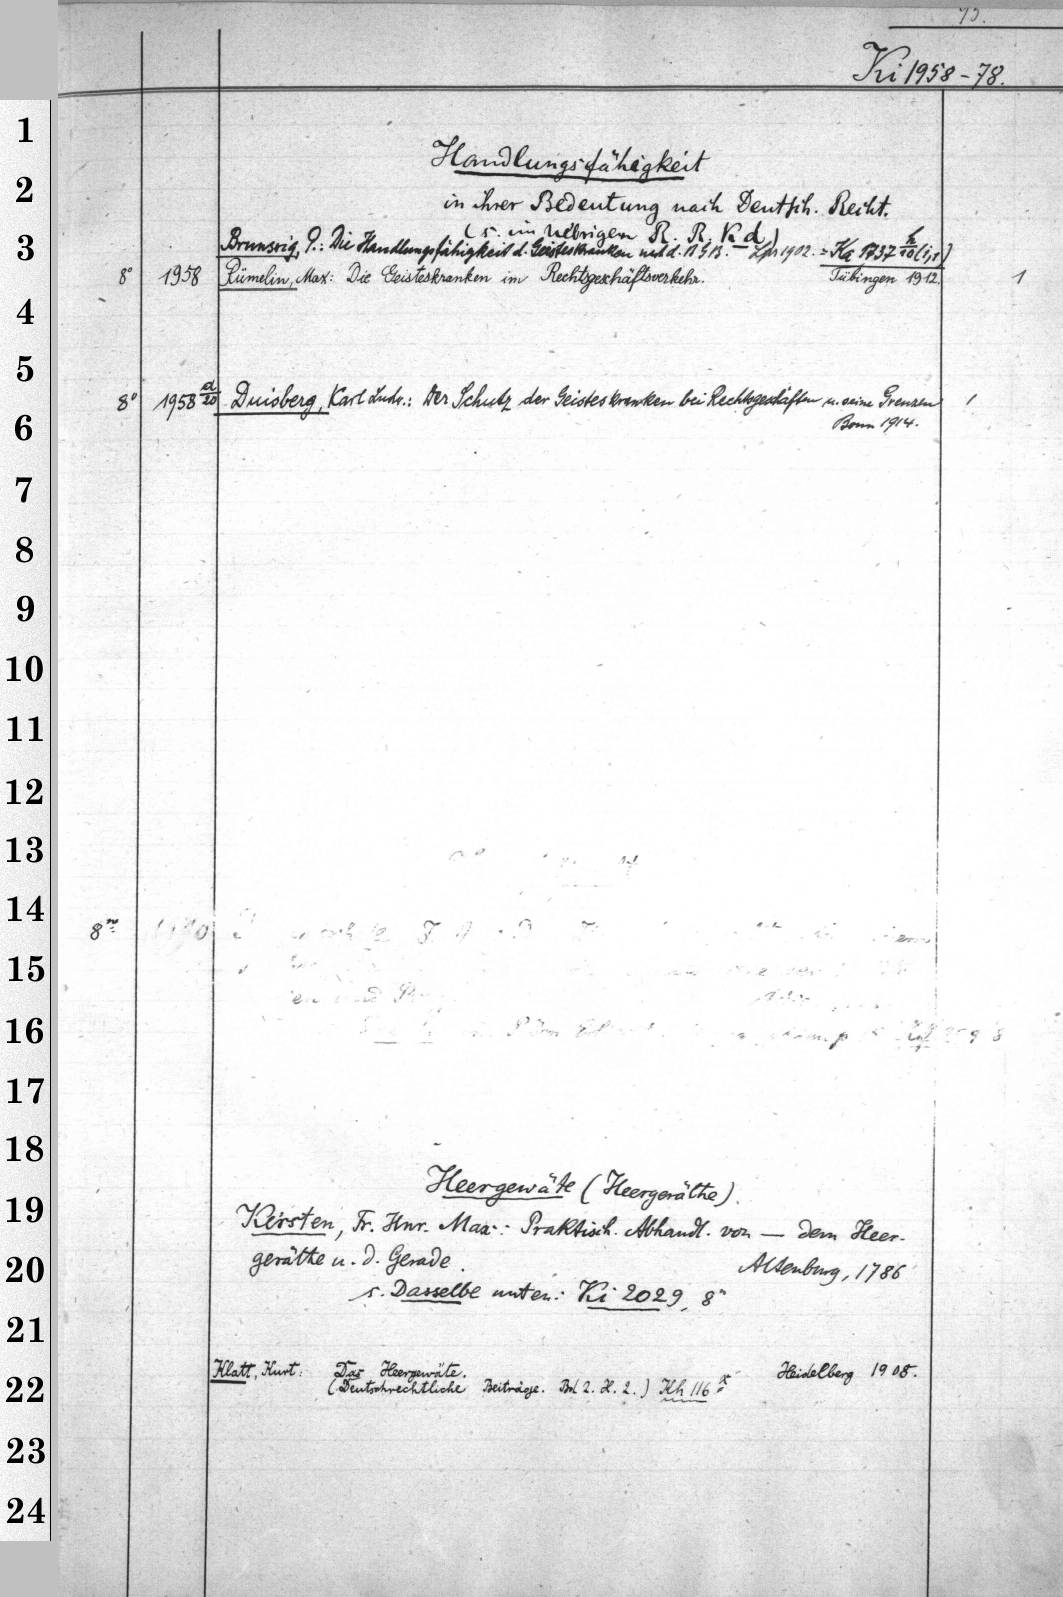 Ki 1958-78.
1
Handlungsfähigkeit
2
in ihrer Bedeutung nach Deutsch. Recht.
(s. im Uebrigen R. R. Ka d)
3
Brunswig, P.: Die Handlungsfähigkeit d. Geisteskranken nach d. BGB. Lpz 1902. = Ka 1737 h/10 (1,1)
8° 1958 Rümelin, Max: Die Geisteskranken im Rechtsgeschäftsverkehr. Tübingen 1912. 1
4
5
8° 1958 d/20 Duisberg, Karl Ludw.: Der Schutz der Geisteskranken bei Rechtsgeschäften u. seine Grenzen 1
6
Bonn 1914.
7
8
9
10
11
12
13
14
8°
15
16
17
18
Heergewäte (Heergeräthe).
19
Kersten, Fr. Hnr. Max.: Praktisch. Abhandl. von — dem Heer-
20
geräthe u. d. Gerade. Altenburg, 1786
s. Dasselbe unten: Ki 2029, 8°
21
Klatt, Kurt: Das Heergewäte. Heidelberg 1908.
22
(Deutschrechtliche Beiträge. Bd 2. H. 2.) Kh 116
23
24